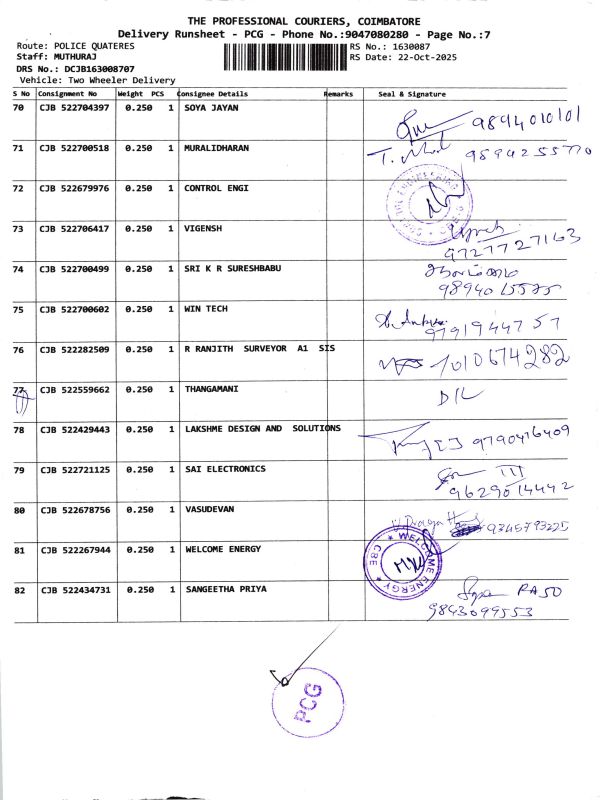 THE PROFESSIONAL COURIERS, COIMBATORE
Delivery Runsheet - PCG - Phone No.:9047080280 - Page No.:7
Route: POLICE QUATERES RS No.: 1630087
Staff: MUTHURAJ RS Date: 22-Oct-2025
DRS No.: DCJB163008707
Vehicle: Two Wheeler Delivery
S No Consignment No Weight PCS Consignee Details Remarks Seal & Signature
70 CJB 522704397 0.250 1 SOYA JAYAN 9894010101
71 CJB 522700518 0.250 1 MURALIDHARAN 9894255770
72 CJB 522679976 0.250 1 CONTROL ENGI
73 CJB 522706417 0.250 1 VIGENSH 9727727163
74 CJB 522700499 0.250 1 SRI K R SURESHBABU
75 CJB 522700602 0.250 1 WIN TECH 9791944757
76 CJB 522282509 0.250 1 R RANJITH SURVEYOR A1 SIS
77 CJB 522559662 0.250 1 THANGAMANI D/L
78 CJB 522429443 0.250 1 LAKSHME DESIGN AND SOLUTIONS 9790416409
79 CJB 522721125 0.250 1 SAI ELECTRONICS 9629014442
80 CJB 522678756 0.250 1 VASUDEVAN
81 CJB 522267944 0.250 1 WELCOME ENERGY WELCOME ENERGY CBE
82 CJB 522434731 0.250 1 SANGEETHA PRIYA
9843099553
PCG